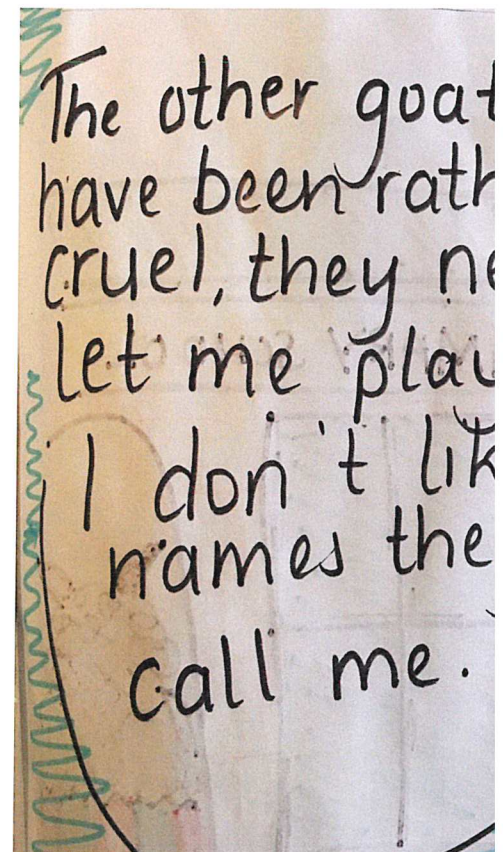 The other goat
have been rath
cruel, they ne
let me play
I don't lik
names the
call me.